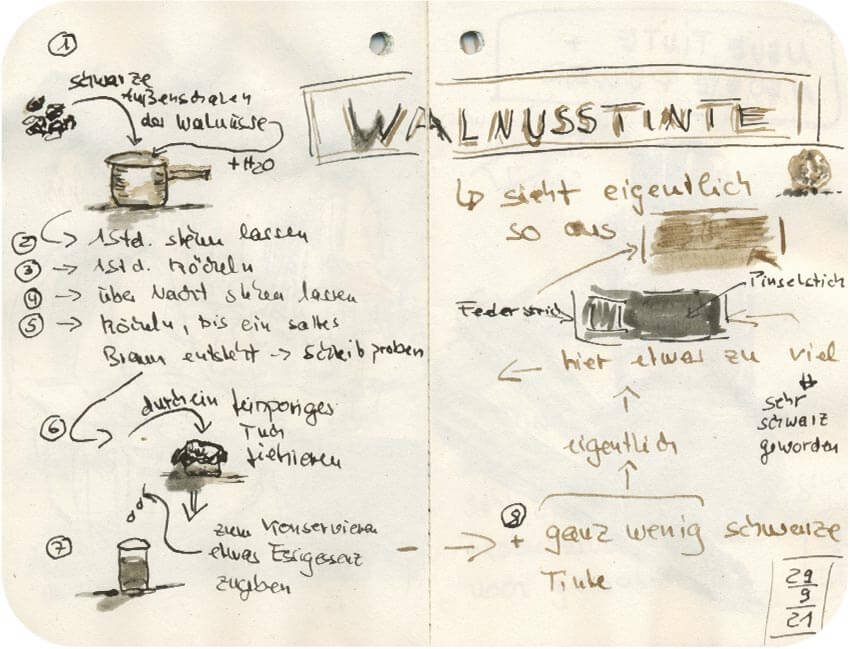 1
schwarze
Außenschalen
der Walnüsse
+ H2O
2 → 1Std. stehen lassen
3 → 1Std. köcheln
4 → über Nacht stehen lassen
5 → köcheln, bis ein sattes
Braun entsteht → Schreibproben
6
durch ein feinporiges
Tuch
filtrieren
7
zum Konservieren
etwas Essigessenz
zugeben
WALNUSSTINTE
↳ sieht eigentlich
so aus
Pinselstrich
Federstrich
← hier etwas zu viel
sehr
schwarz
geworden
↑
eigentlich
↑
8
→ + ganz wenig schwarze
Tinte
29
9
21